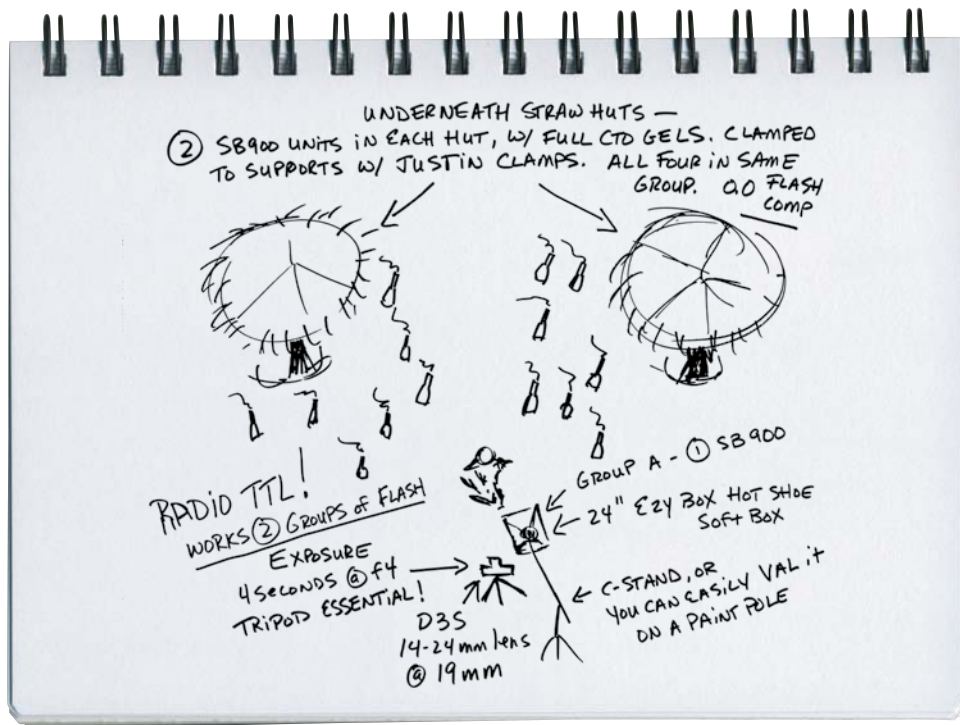 UNDERNEATH STRAW HUTS —
② SB900 UNITS IN EACH HUT, W/ FULL CTO GELS. CLAMPED
TO SUPPORTS W/ JUSTIN CLAMPS. ALL FOUR IN SAME
GROUP. 0.0 FLASH
COMP
RADIO TTL!
WORKS ② GROUPS of FLASH
EXPOSURE
4 SECONDS @ f4
TRIPOD ESSENTIAL!
GROUP A - ① SB900
24" EZY BOX HOT SHOE
SOFT BOX
C-STAND, OR
YOU CAN EASILY VAL iT
ON A PAINT POLE
D3S
14-24mm lens
@ 19mm